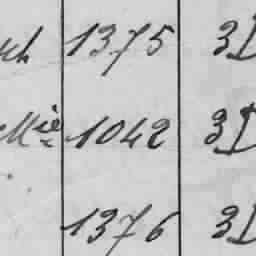 1375 3D
Mie 1042 3D
1376 3D